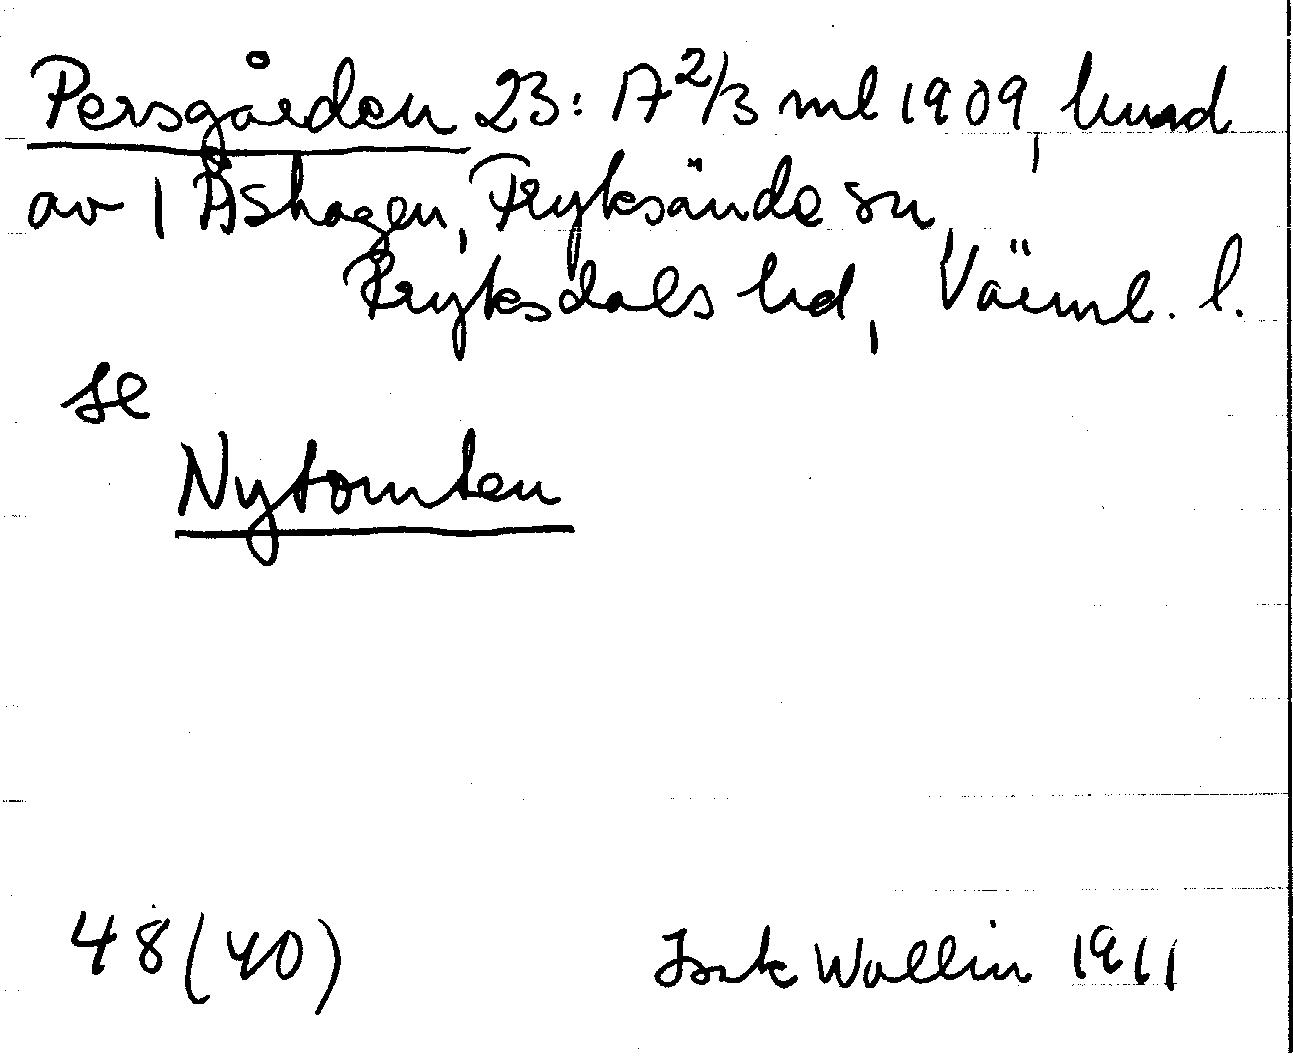 Persgården 23: A 2/3 ml 1909, hmd
av 1 Åshagen, Fryksände sn,
Fryksdals hd, Värml. l.
se
Nytomten
48 (40) Wallin 1911